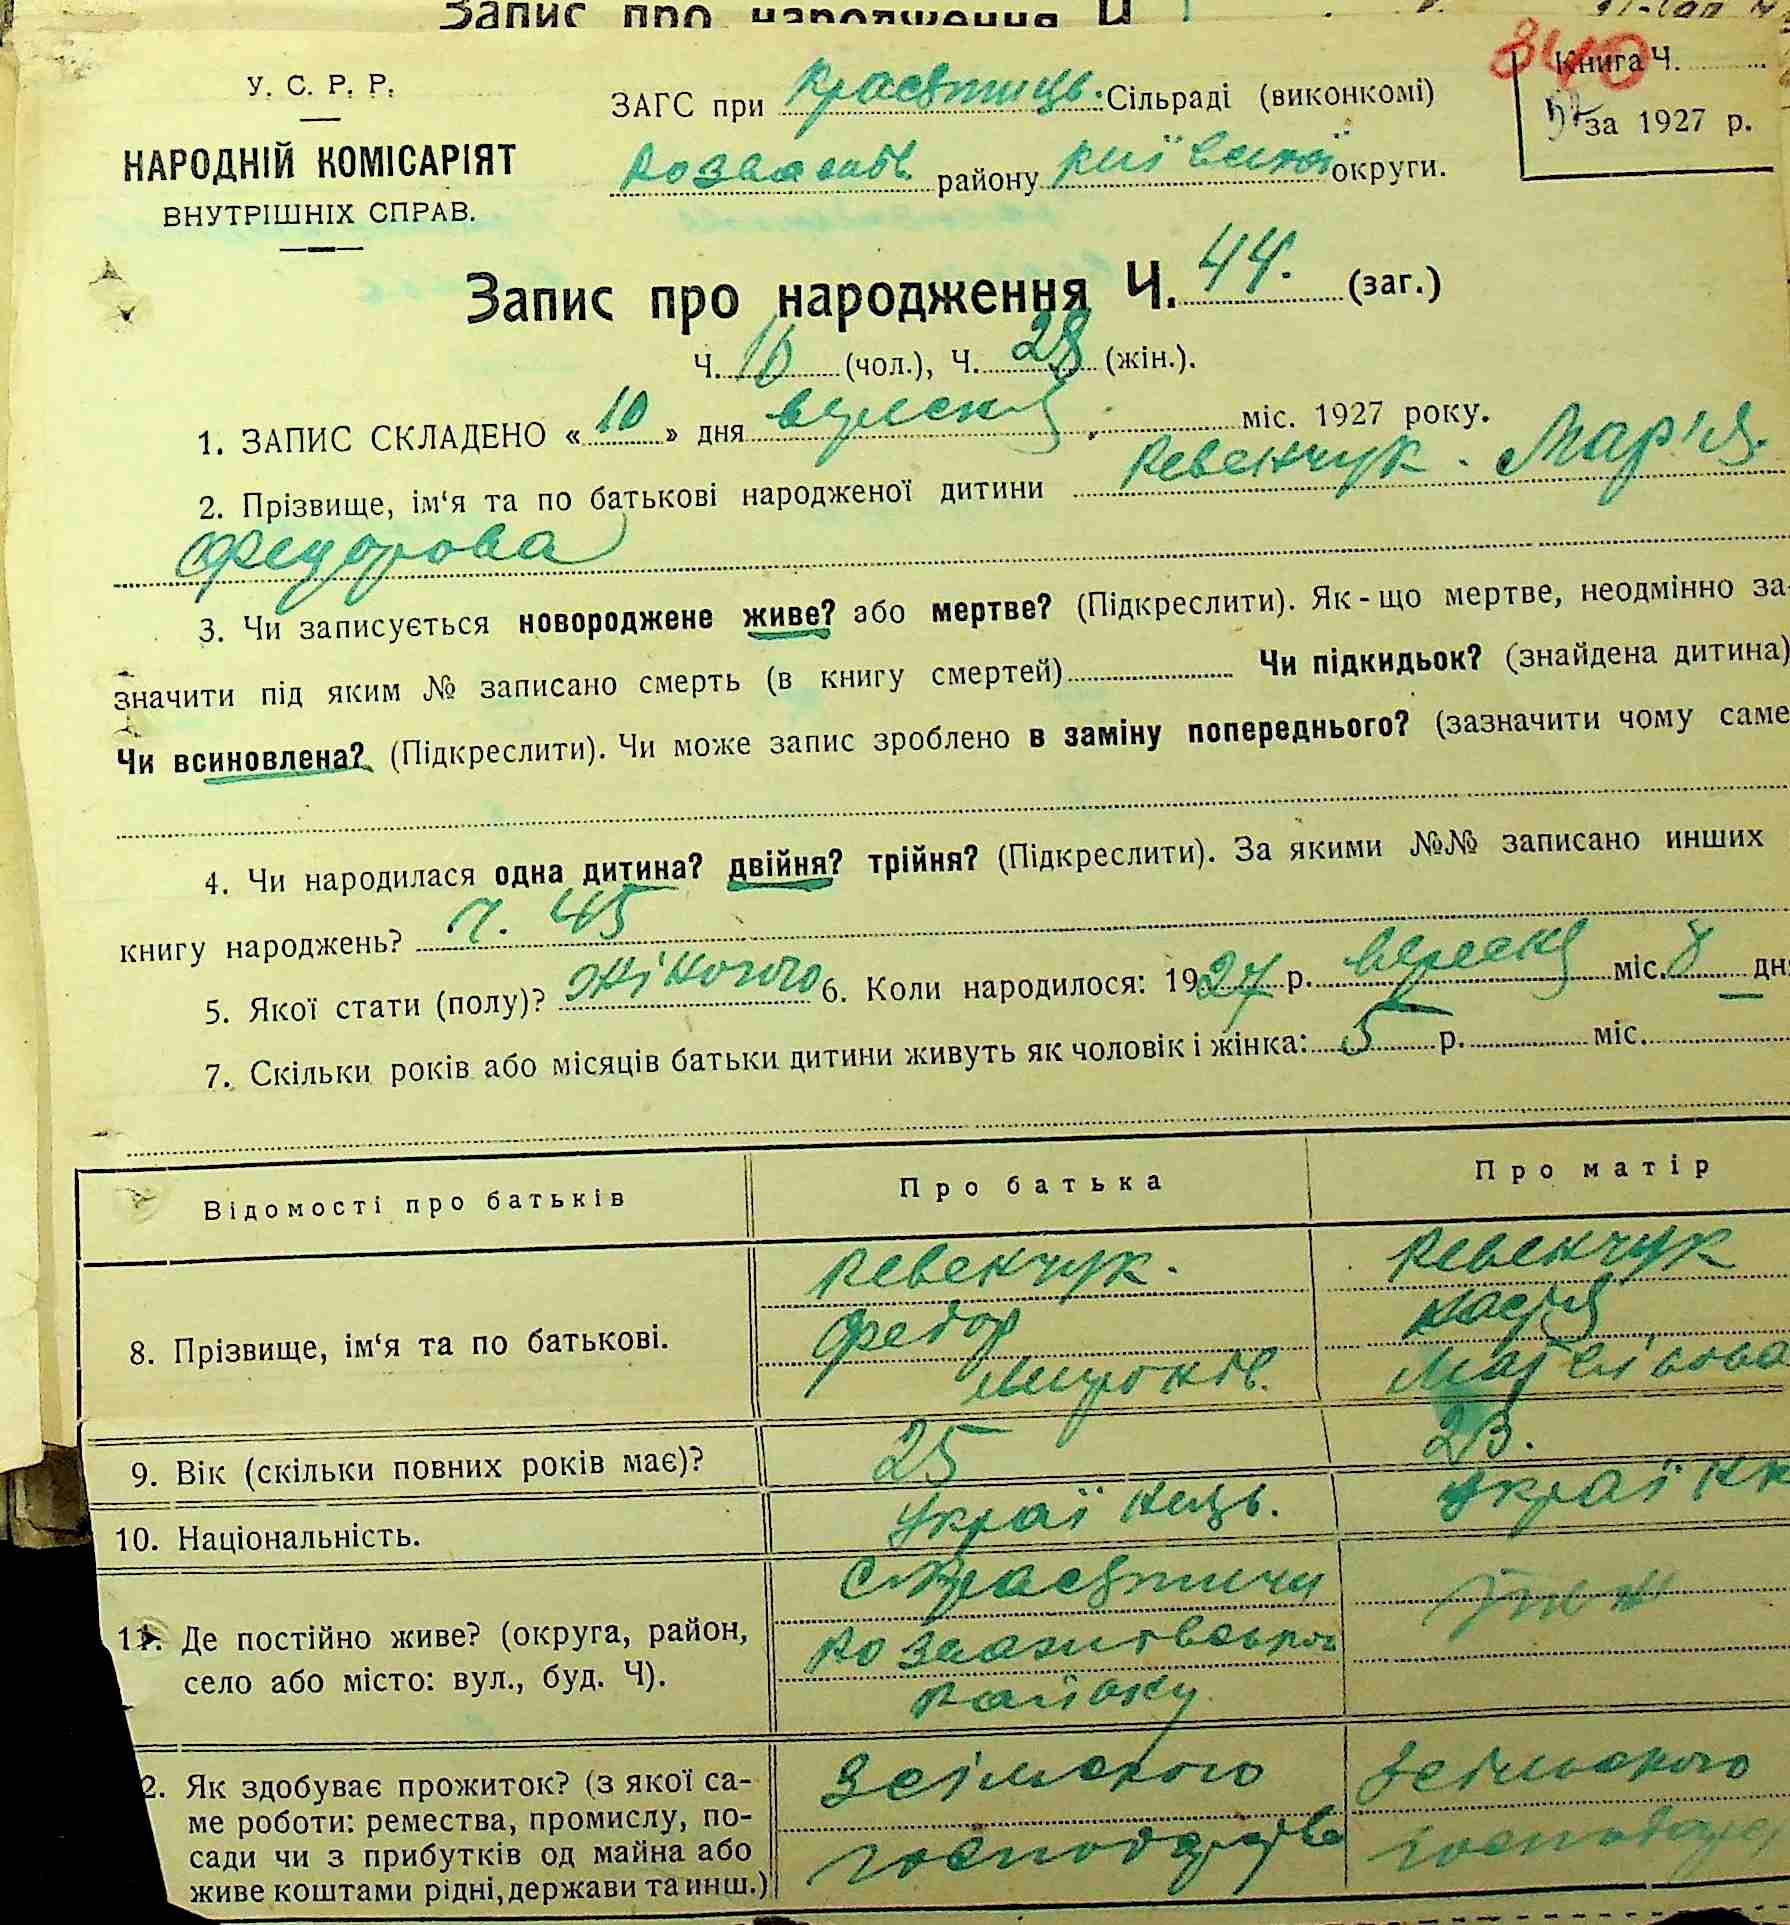 Запис про народження Ч
У. С. Р. Р.
НАРОДНІЙ КОМІСАРІЯТ
ВНУТРІШНІХ СПРАВ.
ЗАГС при Красятиць. Сільраді (виконкомі)
району Київської округи.
Книга Ч.
за 1927 р.
Запис про народження Ч. 44. (заг.)
Ч. 16 (чол.), Ч. 28 (жін.).
1. ЗАПИС СКЛАДЕНО «10» дня вересня міс. 1927 року.
2. Прізвище, ім‘я та по батькові народженої дитини Ревенчук. Мар'я.
Федорова
3. Чи записується новороджене живе? або мертве? (Підкреслити). Як-що мертве, неодмінно за-
значити під яким № записано смерть (в книгу смертей) Чи підкидьок? (знайдена дитина)
Чи всиновлена? (Підкреслити). Чи може запис зроблено в заміну попереднього? (зазначити чому саме
4. Чи народилася одна дитина? двійня? трійня? (Підкреслити). За якими №№ записано инших
книгу народжень? ч. 45
5. Якої стати (полу)? жіночого 6. Коли народилося: 1927 р. вересня міс. 8 дн
7. Скільки років або місяців батьки дитини живуть як чоловік і жінка: 5 р. міс.
Відомості про батьків Про батька Про матір
8. Прізвище, ім‘я та по батькові.
Ревенчук. Ревенчук
Федор
Миронів.
9. Вік (скільки повних років має)? 25 23.
10. Національність. Українець. Українк
11. Де постійно живе? (округа, район, село або місто: вул., буд. Ч).
с. Красятичи
Розважівського
району
2. Як здобуває прожиток? (з якої са-
ме роботи: ремества, промислу, по-
сади чи з прибутків од майна або
живе коштами рідні, держави та инш.)
Зсільського Зсільського
господарства господар